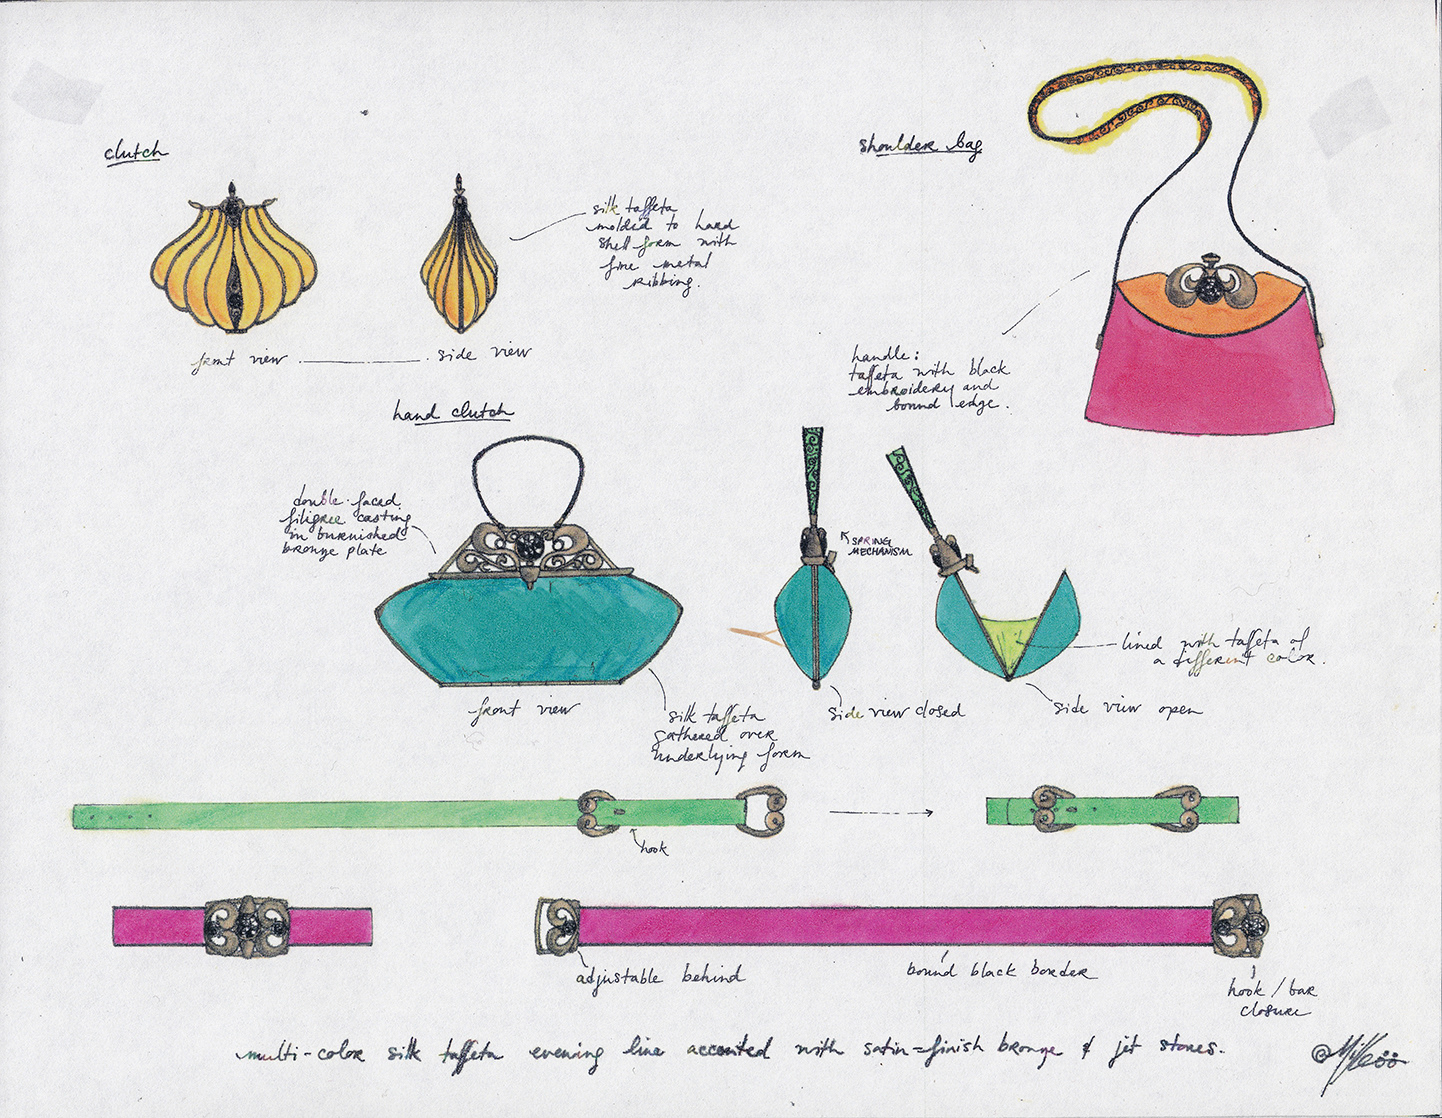 clutch
shoulder bag
silk taffeta
molded to hard
shell form with
fine metal
ribbing.
front view
side view
handle:
taffeta with black
embroidery and
bound edge.
hand clutch
double-faced
filigree casting
in burnished
bronze plate
SPRING
MECHANISM
lined with taffeta of
a different color.
front view
silk taffeta
gathered over
underlying form
side view closed
side view open
hook
adjustable behind
bound black border
hook / bar
closure
multi-color silk taffeta evening line accented with satin=finish bronze & jet stones.